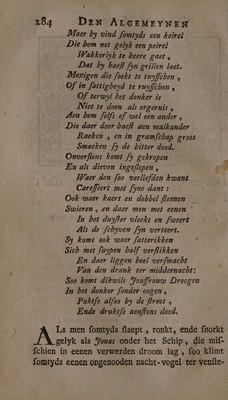 284 DEN ALGEMEYNEN
Maer by vind somtyds een keirel
Die hem net gelyk een peirel
Wakkerlyk te keere gaet,
Dat hy haest syn grillen laet.
Menigen die soekt te tuysschen,
Of in sattigheyd te ruysschen,
Of terwyl het donker is
Niet te doen als ergernis,
Aen hem selfs of wel een ander,
Die daer door haest aen malkander
Raeken, en in gramschap groot
Smaeken sy de bitter dood.
Onversiens komt sy gekropen
En als dieven ingeslopen,
Waer den soo verliefden kwant
Caresseert met syne dant:
Ook waer kaert en dobbel steenen
Swieren, en daer men met eenen
In het duyster vloekt en sweert
Als de schyven syn verteert.
Sy komt ook waer satterikken
Sich met suypen half verslikken
En daer liggen heel versmacht
Van den drank ter middernacht:
Soo komt dikwils Jouffrouw Droogen
In het donker sonder oogen,
Pakse alsoo by de stroot,
Ende drukse aenstons dood.
ALs men somtyds slaept, ronkt, ende snorkt
gelyk als Jonas onder het Schip, die mis-
schien in eenen verwerden droom lag, soo klimt
somtyds eenen ongenooden nacht-vogel ter venste-